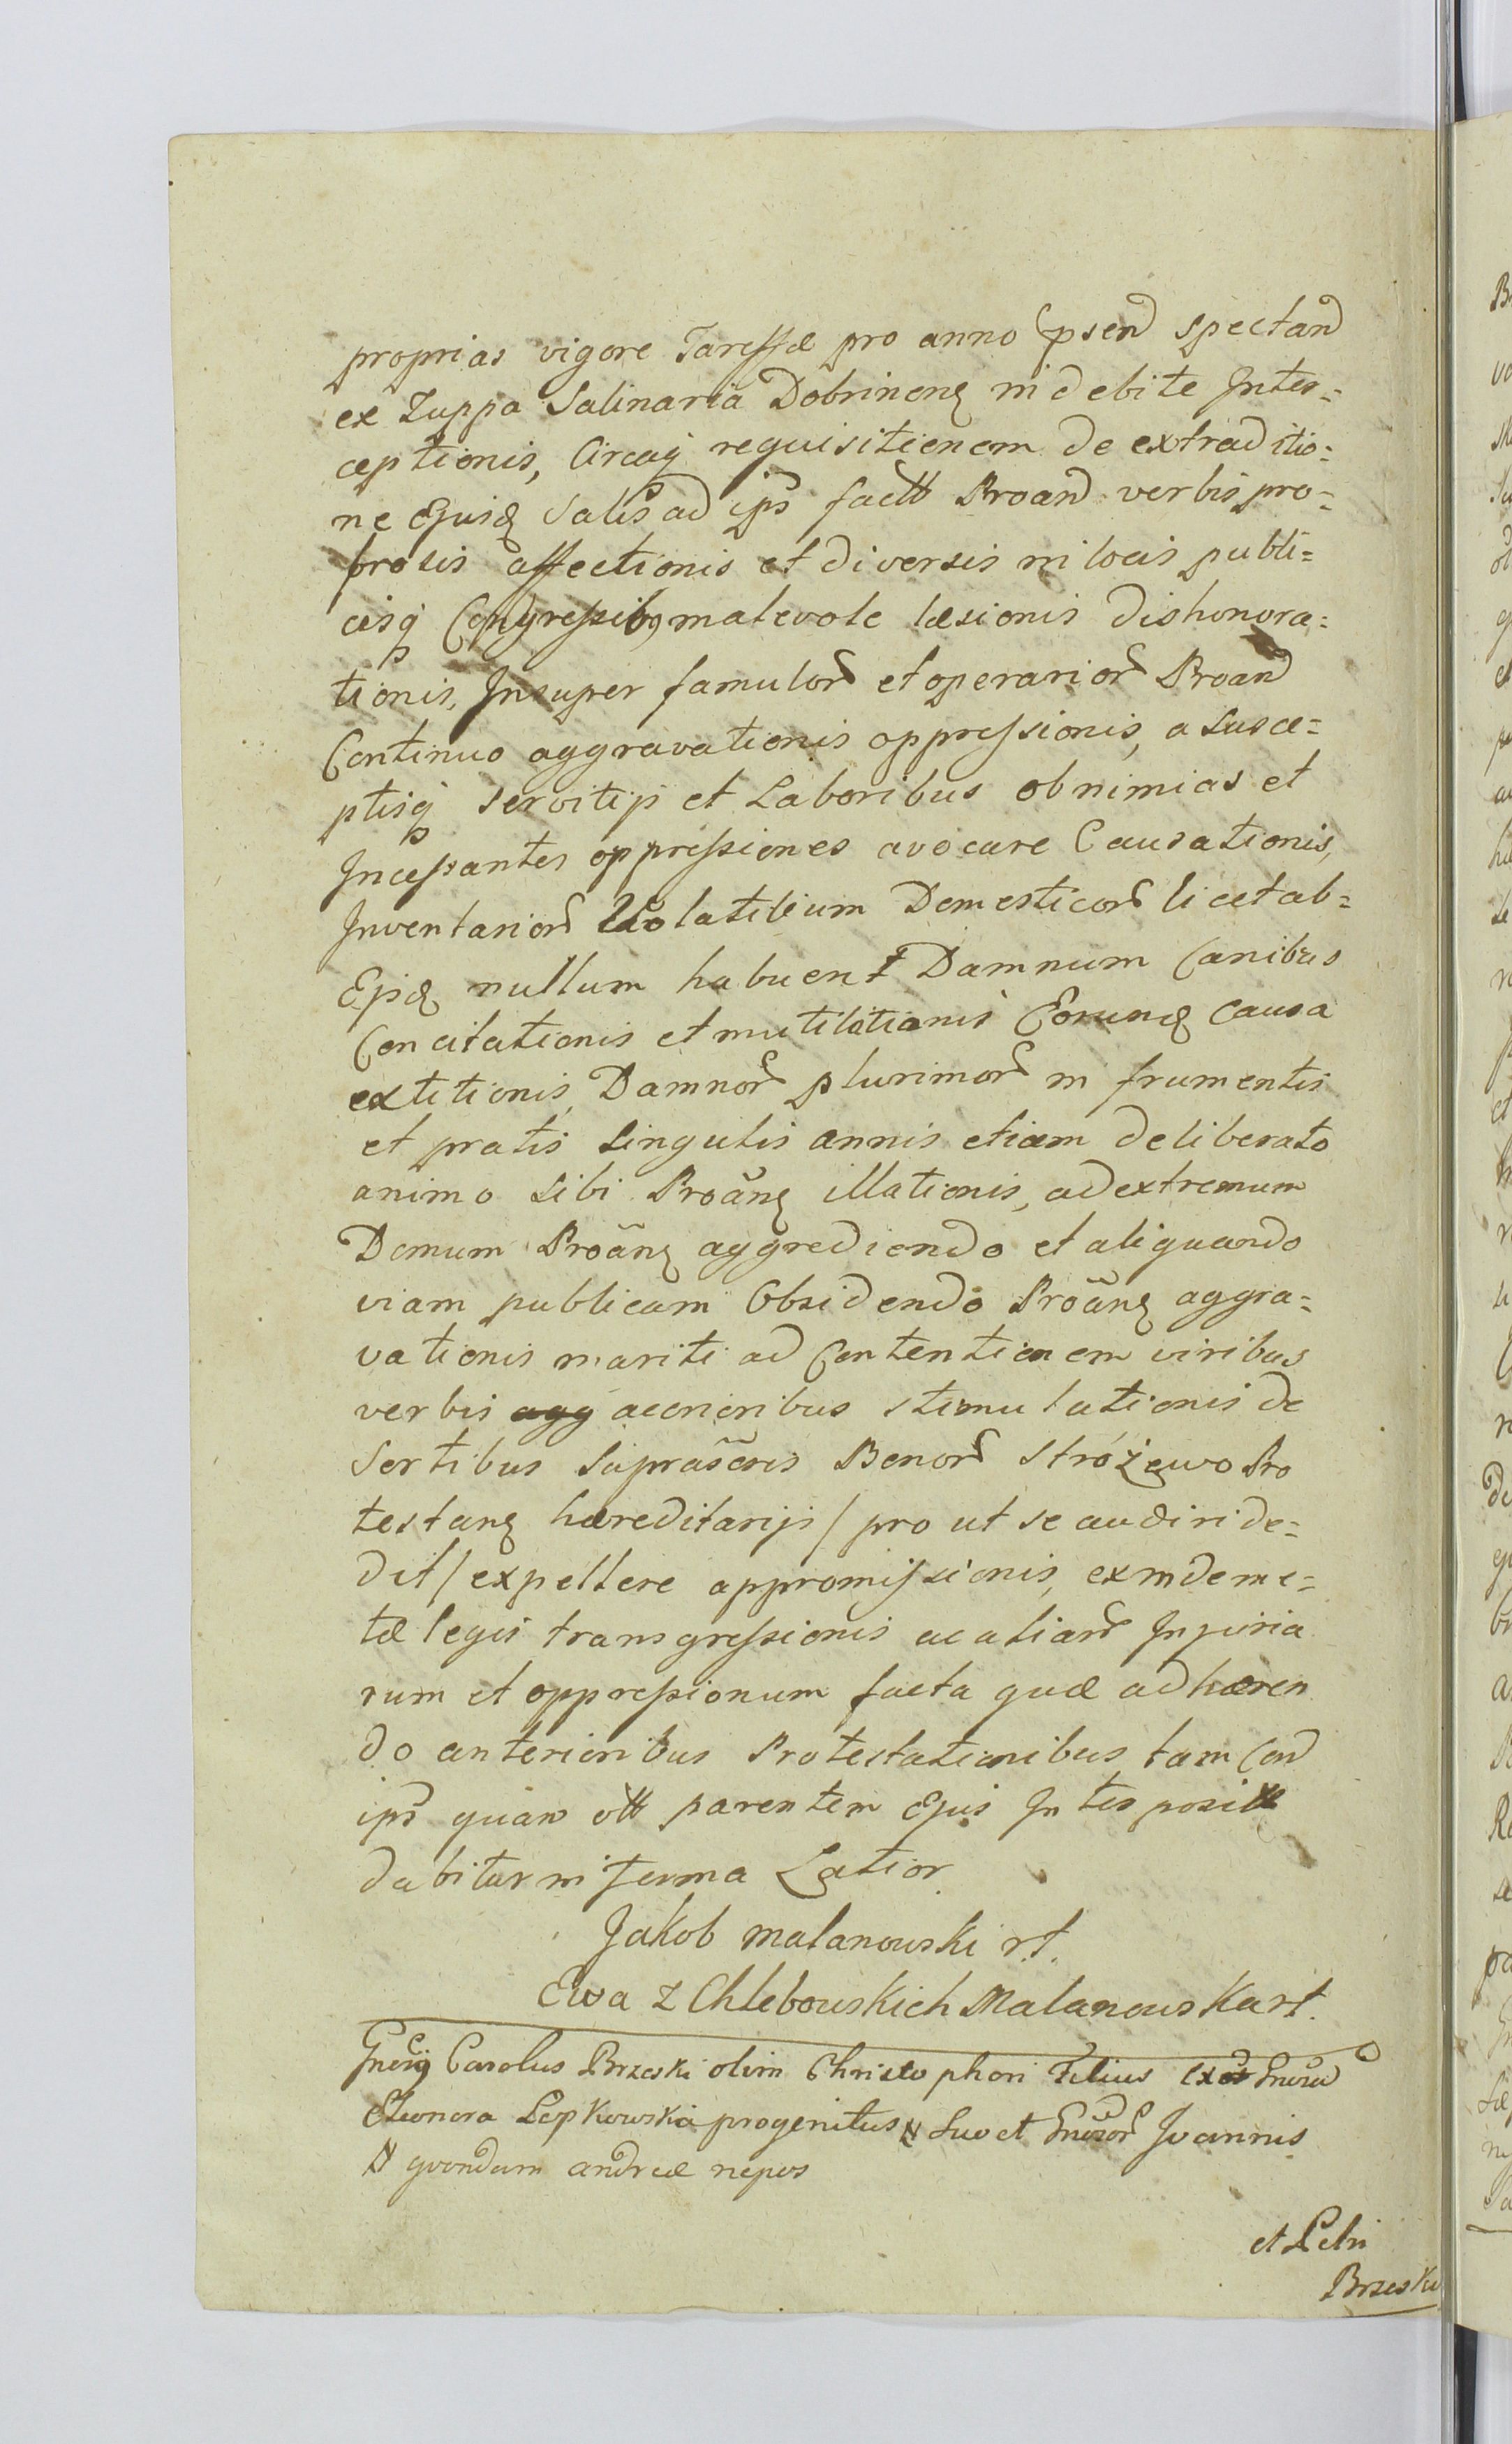 proprias vigore Tareffæ pro anno psend spectand
ex Zuppa Salinaria Dobrinenq indebite Inter=
ceptionis, Circaq requisitionem de extraditio=
ne Ejusq Salis ad ips factt Proand verbis pro=
brosis affectionis et diversis in locis publi=
cisq Congressibq malevole læsionis dishonora=
tionis, Insuper famulor et operarior Proand
Continuo aggravationis oppressionis, a susce=
ptisq servitijs et Laboribus ob nimias et
Incessantes oppressiones avocare Causationis,
Inventarior Volatilium Domesticor licet ab=
Epiq nullum habuent Damnum Canibus
Concitationis et mutilationis Eorunq causa
extitionis, Damnor plurimor in frumentis
et pratis singulis annis etiam deliberato
animo sibi Proãnq illationis, ad extremum
Domum Proãnq aggrediendo et aliquando
viam publicam Obsidendo Proãnq aggra=
vationis mariti ad Contentionem viribus
verbis agg acrioribus stimulationis de
Sortibus Suprascris Benor Stróżewo Pro
testanq hæreditarijs / pro ut se audiri de=
dit / expellere appromissionis, exindeme=
tæ legis transgressionis ac aliar Injuria
rum et oppressionum facta quæ adhæren
do anterioribus Protestationibus tam Cond
ips quam ott parentem Ejus Interposittt
dabitur in forma Latior
Jakob Malanowski rt.
Ewa z Chlebowskich Malanowska rt.
Gnerq Carolus Brzeski olim Christophori Filius ex Gnosa
Eleonora Lepkowska progenitus # Suo et Gnosor Joannis
# quondam andreæ nepos
et Petri
Brzeski